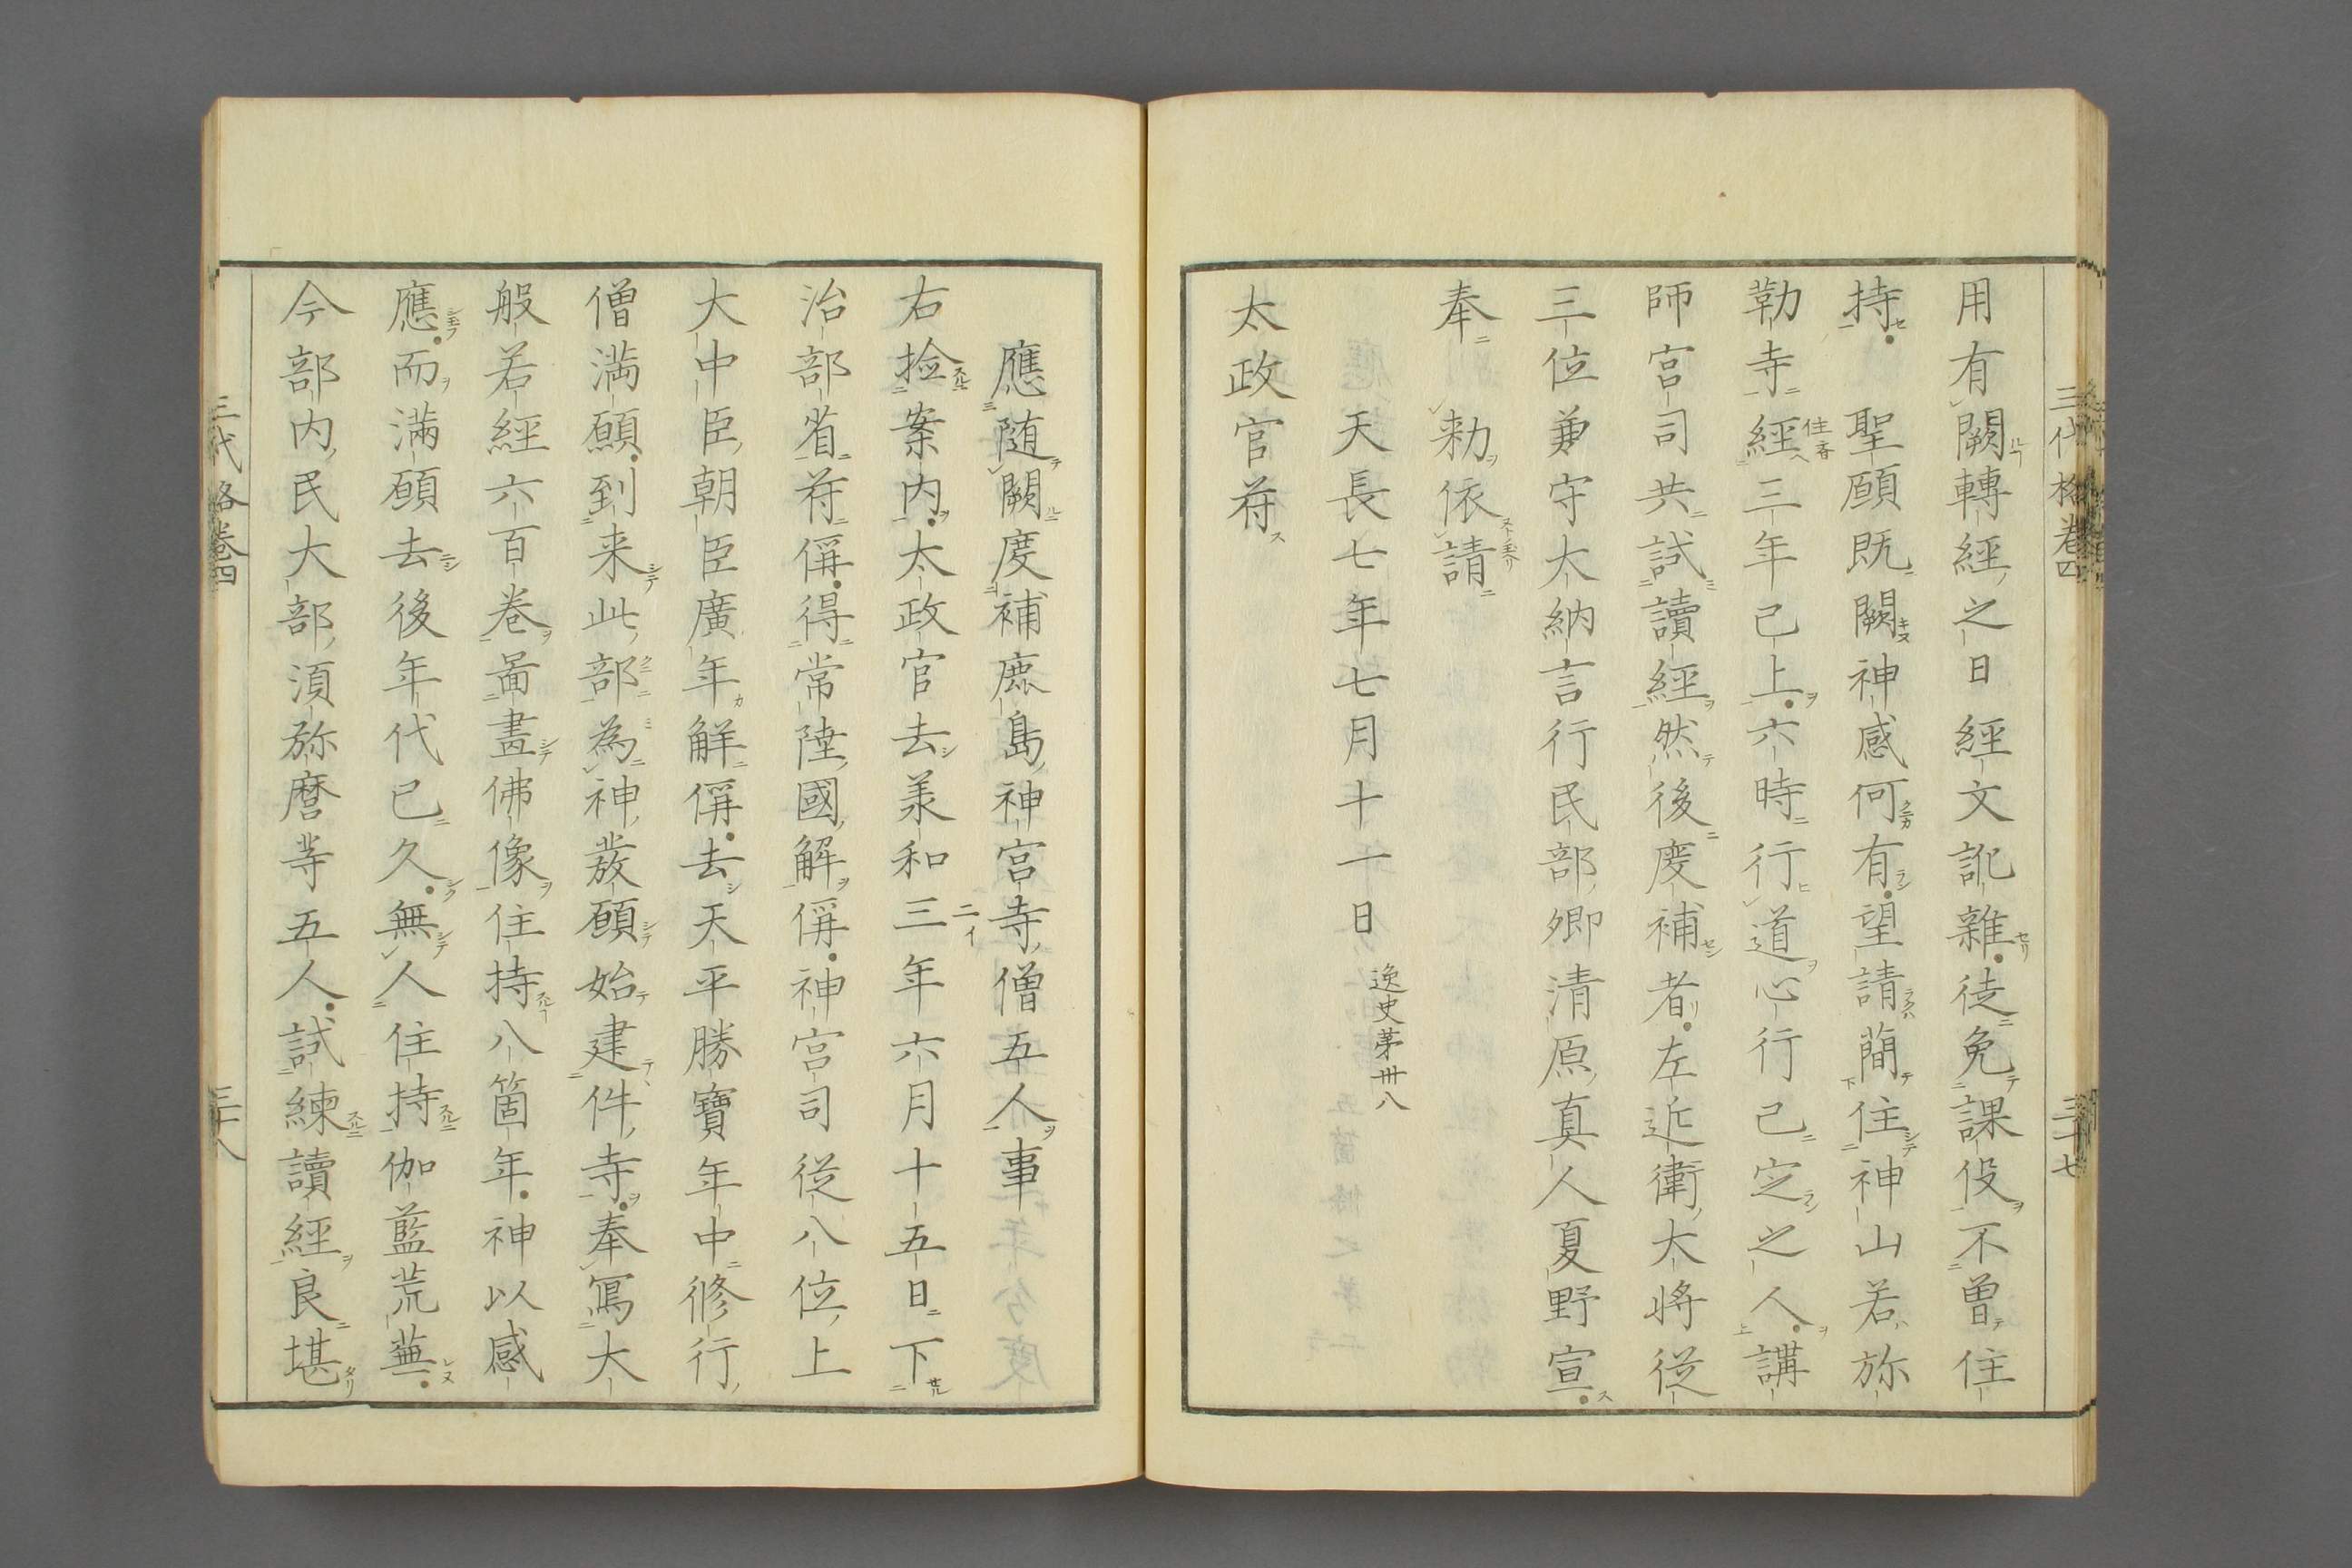 三代格卷四
三十七
用有闕轉經之日經文訛雜徒免課役不曽住
持聖願既闕神感何有望請蕳住神山若弥
勒寺經三年已上六時行道心行已定之人講
住吝
師宮司共試讀經然後度補者左近衛大将従
三位兼守大納言行民部卿清原真人夏野宣
奉勅依請
天長七年七月十一日 逸史苐卅八
太政官符
應随闕度補鹿島神宮寺僧五人事
右撿案内太政官去羕和三年六月十五日下
二イ
治部省符偁得常陸國解偁神宮司従八位上
大中臣朝臣廣年解偁去天平勝寶年中修行
僧満願到来此部為神發願始建件寺奉寫大
般若經六百卷啚畫佛像住持八箇年神以感
應而満願去後年代已久無人住持伽藍荒蕪
今部内民大部須弥麿等五人試練讀經良堪
三代格卷四
三十八